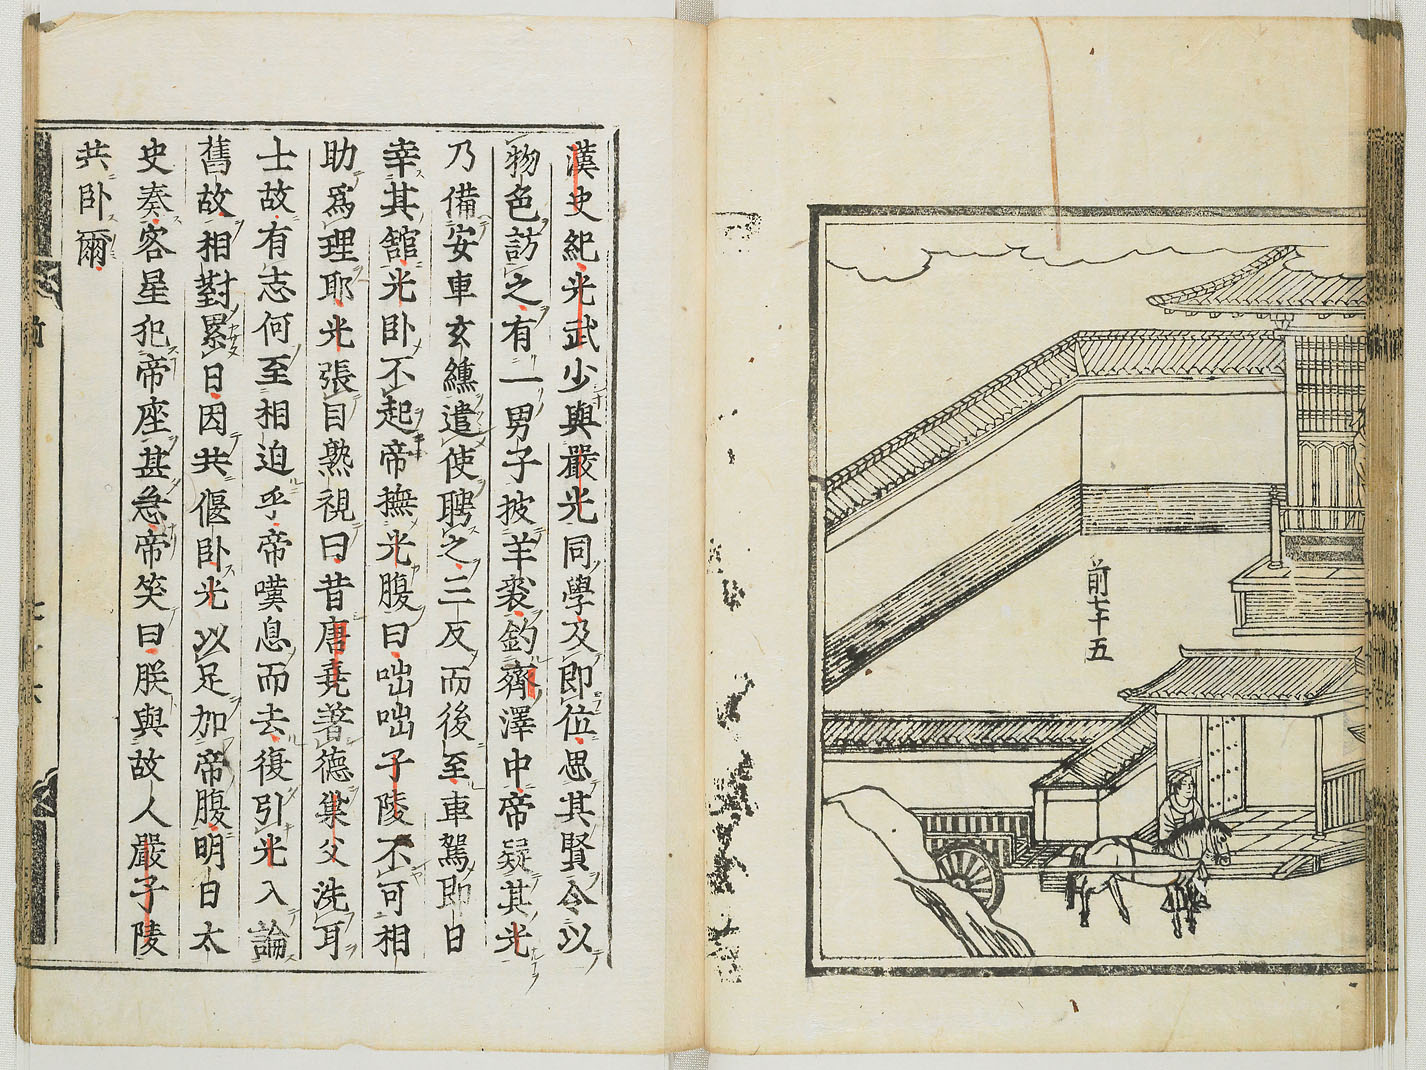 前七十五
漢史紀光武少與嚴光同學及即位思其賢令以
物色訪之有一男子披羊裘釣齊澤中帝疑其光
乃備安車玄纁遣使聘之三反而後至車駕即日
幸其舘光卧不起帝撫光腹曰咄咄子陵不可相
助爲理耶光張目熟視曰昔唐堯著德巢父洗耳
士故有志何至相迫乎帝嘆息而去復引光入論
舊故相對累日因共偃卧光以足加帝腹明日太
史奏客星犯帝座甚急帝笑曰朕與故人嚴子陵
共卧爾